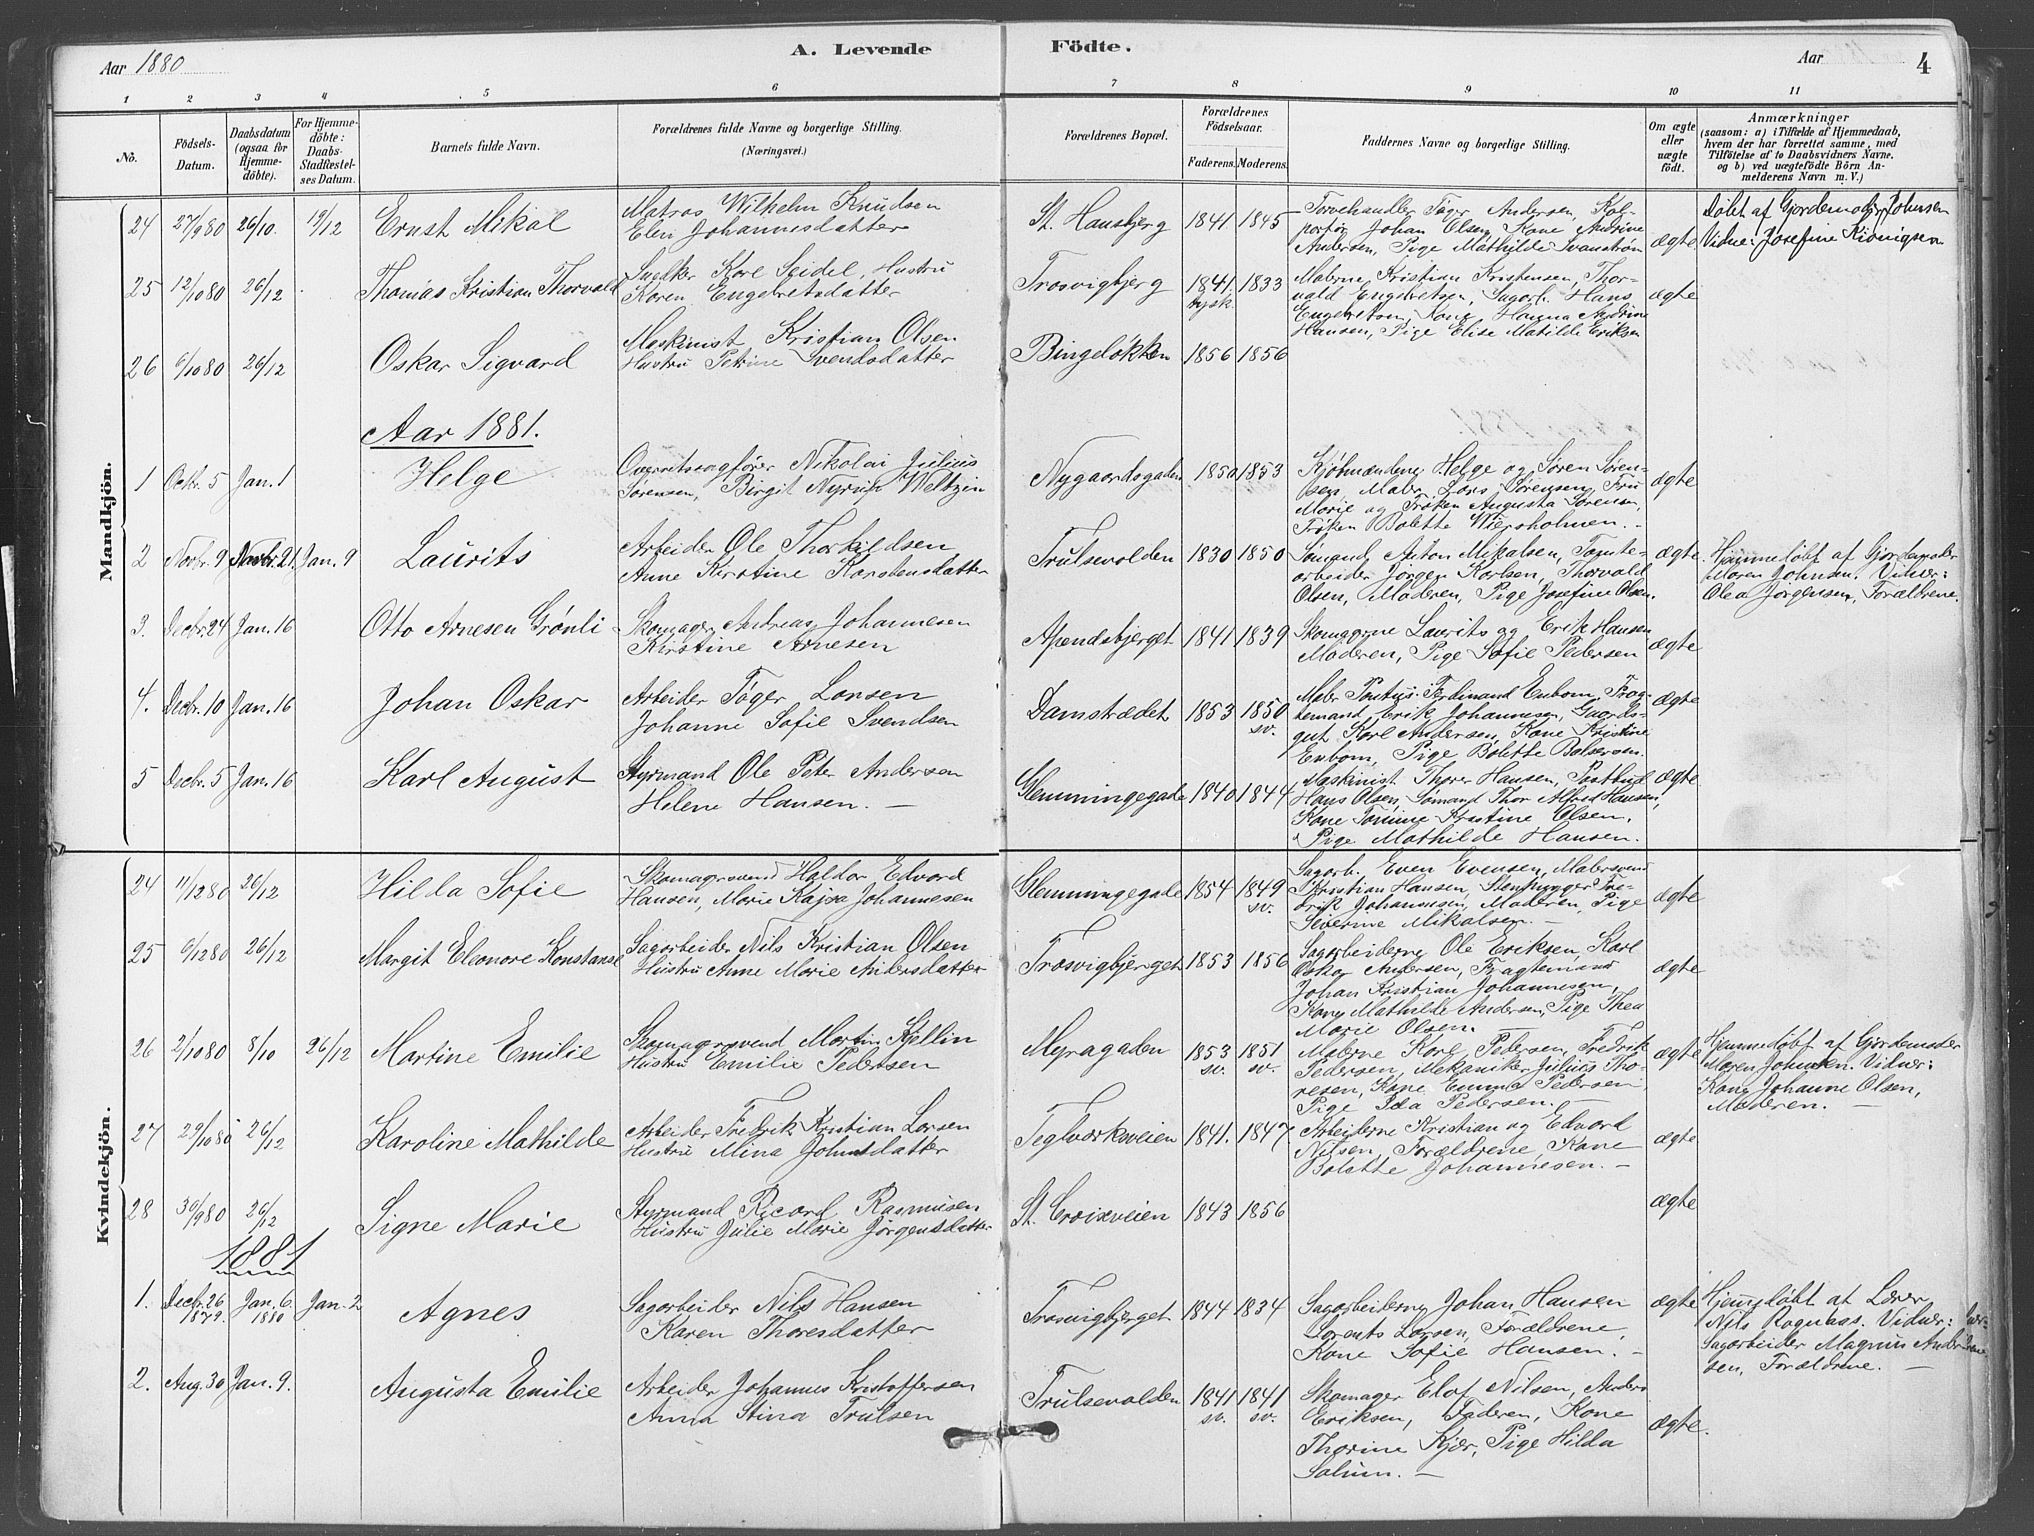 Aar 1880
A. Levende Födte.
Aar
4
1 2 3 4 5 6 7 8 9 10 11
No.
Födsels-Datum.
Daabsdatum (ogsaa for Hjemme-döbte).
For Hjemme-döbte: Daabs-Stadfæstel-ses Datum.
Barnets fulde Navn.
Forældrenes fulde Navne og borgerlige Stilling.
(Næringsvei.)
Forældrenes Bopæl.
Forældrenes Födselsaar.
Faderens. Moderens.
Faddernes Navne og borgerlige Stilling.
Om ægte eller uægte födt.
Anmærkninger
(saasom: a) i Tilfælde af Hjemmedaab,
hvem der har forrettet samme, med
Tilföielse af to Daabsvidners Navne,
og b) ved uægtefödte Börn An-
melderens Navn m. V.)
Mandkjön.
24 27/9 80 26/10. 19/12 Ernst Mikal
Matros Wilhelm Knudsen
Elen Johannesdatter
St. Hansbjerg 1841 1845
Torvehandler Töger Andersen, Kol-
portör Johan Olsen, Kone Andrine
Andersen, Pige Mathilde Svanström
ægte
Döbt af Gjordemoder Johnsen
Vidne: Josefine
25 12/10 80 26/12 Thomas Kristian Thorvald
Snedker Karl Seidel, Hustru
Karen Engebretsdatter
Trosvigbjerg 1841. tysk 1833
Malerne Kristian Kristensen, Thor-
vald Engebretsen, Sagarb. Hans
Engebretsen, Kone Hanna Andrine
Hansen, Pige Elise Matilde Eriksen
ægte
26 6/10 80 26/12 Oskar Sigvard
Maskinist Kristian Olsen
Hustru Petrine Svendsdatter
Bingeløkken 1856 1856
Aar 1881.
1 Octbr. 5 Jan. 1 Helge
Overretssagfører Nikolai Julius
Sørensen, Birgit Nyrup Weltzin
Nygaardsgaden 1850 1853
Kjøbmændene Helge og Søren Søren-
sen, Maler Lars Sørensen, Fru
Marie og Frøken Augusta Sørensen,
Frøken Bolette Wiersholmen. -
ægte
2 Novbr. 9 Novbr. 21. Jan. 9 Laurits
Arbeider Ole Thorkildsen
Anne Kirstine Karstensdatter
Trulsevolden 1830 1850
Sömand Anton Mikalsen, Tomte-
arbeider Jörgen Karlsen, Thorvald
Olsen, Moderen, Pige Josefine Olsen.
ægte
Hjemmedöbt af Gjordemoder
Maren Johnsen. Vidner:
Olea Jørgensen, Forældrene.
3. Decbr. 24 Jan. 16 Otto Arnesen Grønli
Skomager Andreas Johannesen
Kirstine Arnesen
Apendsbjerget 1841 1839
Skomagerne Laurits og Erik Hansen
Moderen, Pige Sofie Pedersen
ægte
4. Decbr. 10 Jan. 16 Johan Oskar
Arbeider Töger Larsen
Johanne Sofie Svendsen
Damstrædet 1853 1850 sv.
Maler Pontus Ferdinand Enbom, Frag-
temand Erik Johannesen, Gaards-
gut Karl Andersen, Kone Kristine
Enbom, Pige Bolette
ægte
5 Decbr. 5 Jan. 16 Karl August
Styrmand Ole Peter Andersen
Helene Hansen. -
Glemmingegade 1840 1844
Maskinist Thorer Hansen, Postbud
Hans Olsen, Sömand Thor Alfred Hansen,
Kone Tomine Kristine Olsen,
Pige Mathilde Hansen.
ægte
Kvindekjön.
24 11/12 80 26/12 Hilda Sofie
Skomagersvend Haldor Edvard
Hansen, Marie Kajsa Johannesen
Glemmingegade 1854 1849 sv.
Sagarb. Even Evensen, Malersvend
Kristian Hansen, Stenhugger Fre-
drik Johannesen, Moderen, Pige
Severine Mikalsen. -
ægte
25 6/12 80 26/12 Margit Eleonore Konstanse
Sagarbeider Nils Kristian Olsen
Hustru Anne Marie Andersdatter
Trosvigbjerget 1853 1856
Sagarbeiderne Ole Eriksen, Karl
Oskar Andersen, Fragtemand
Johan Kristian Johannesen,
Kone Mathilde Andersen, Pige Thea
Marie Olsen.
ægte
26 2/10 80 8/10 26/12 Martine Emilie
Skomagersvend Martin Kjellin
Hustru Emilie Pedersen
Myragaden 1853 sv. 1851 sv.
Malerne Karl Pedersen, Fredrik
Pedersen, Mekaniker Julius Tho-
resen, Kone Emma Pedersen
Pige Ida Pedersen. -
ægte
Hjemmedöbt af Gjordemoder
Maren Johnsen. Vidner:
Kone Johanne Olsen,
Moderen. -
27 29/10 80 26/12 Karoline Mathilde
Arbeider Fredrik Kristian Larsen
Hustru Mina Johnsdatter
Teglværksveien 1841. 1847
Arbeiderne Kristian og Edvard
Nilsen, Forældrene, Kone
Bolette Johannesen. -
ægte
28 30/9 80 26/12 Signe Marie
Styrmand Ricard Rasmusen
Hustru Julie Marie Jørgensdatter
St. Croixveien 1843 1856
ægte
1881
1. Decbr. 26 1879. Jan. 6. 1880 Jan. 2 Agnes
Sagarbeider Nils Hansen
Karen Thoresdatter
Trosvigbjerget 1844 1834
Sagarbeiderne Johan Hansen
Lorents Larsen, Forældrene,
Kone Sofie Hansen. -
ægte
Hjemmedöbt af Lærer
Nils Rognaas. Vidner:
Sagarbeider Magnus Ander-
sen, Forældrene. -
2. Aug. 30 Jan. 9. Augusta Emilie
Arbeider Johannes Kristoffersen
Anna Stina Trulsen
Trulsevolden 1841 sv. 1841 sv.
Skomager Elof Nilsen, Anders
Eriksen, Faderen, Kone
Thorine Kjær, Pige Hilda
Solum. -
ægte.